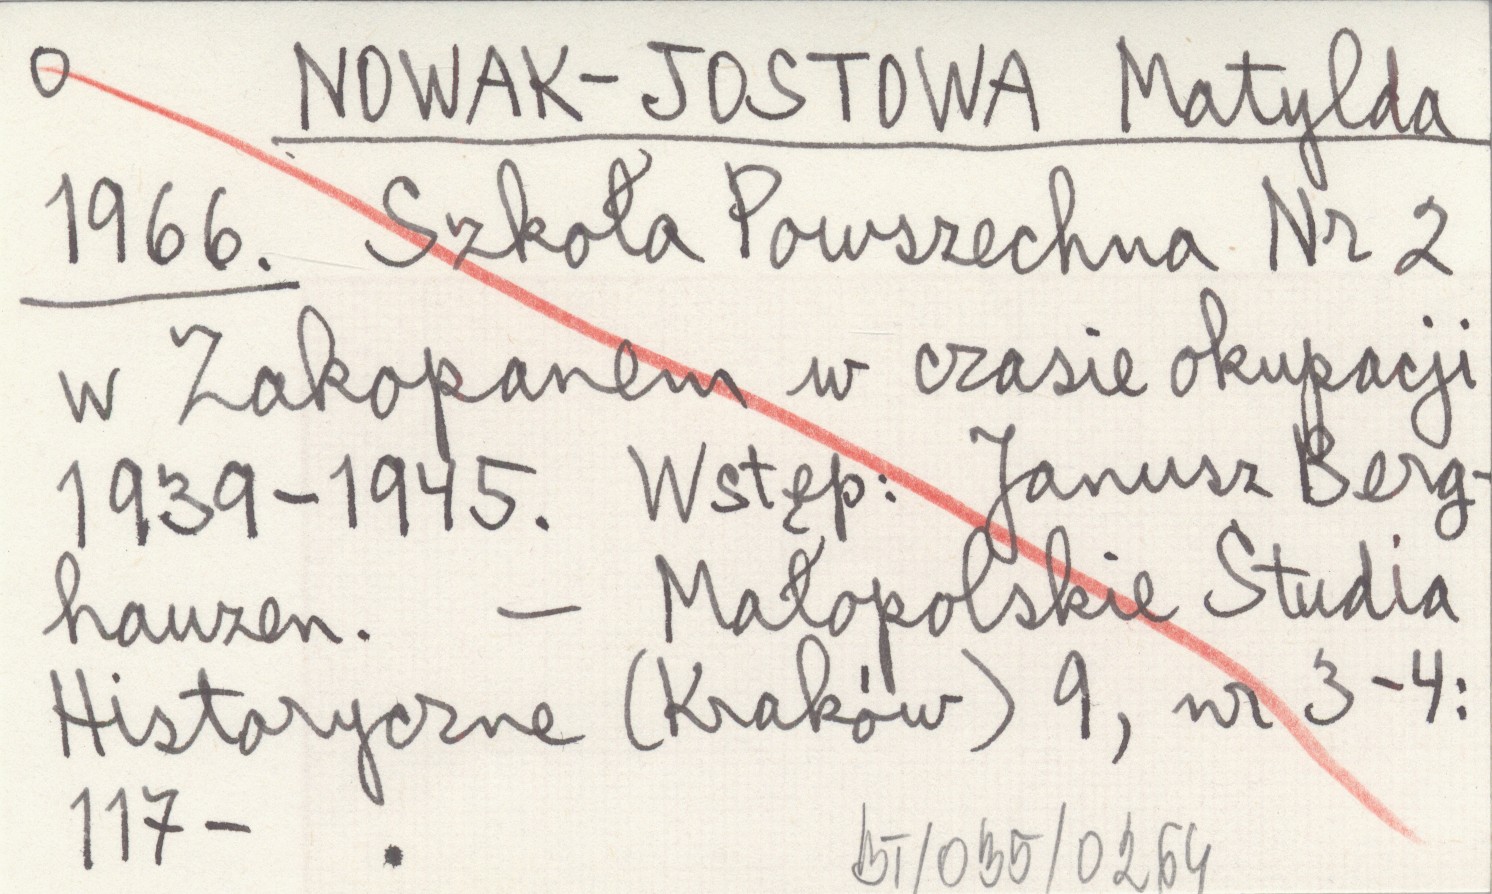 O NOWAK-JOSTOWA Matylda
1966. Szkoła Powszechna Nr 2
w Zakopanem w czasie okupacji
1939-1945. Wstęp: Janusz Berg-
hauzen. — Małopolskie Studia
Historyczne (Kraków) 9, nr 3-4:
117- .
BT/035/0264